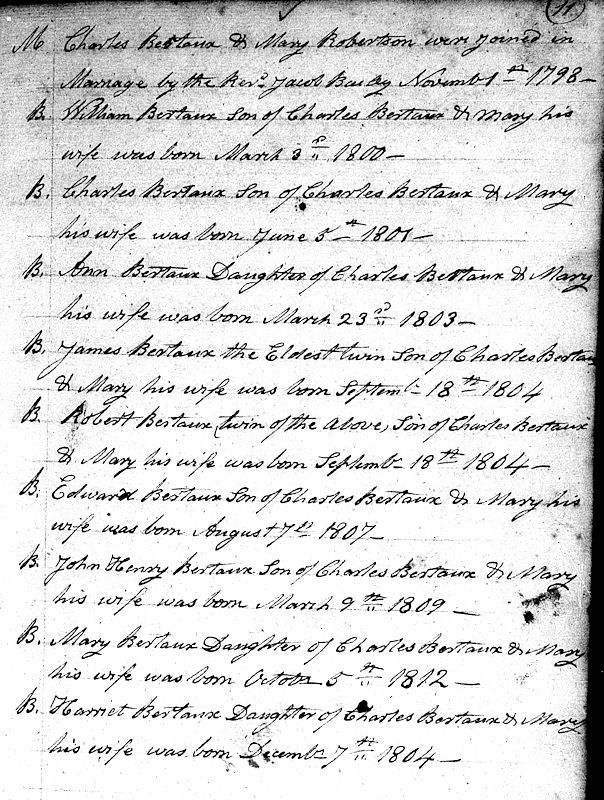 11.
M Charles Bertaux & Mary Robertson were joined in
Marriage by the Revd. Jacob Bailey Novemb 1st 1798 —
B. William Bertaux Son of Charles Bertaux & Mary his
wife was born March 3rd 1800 —
B. Charles Bertaux Son of Charles Bertaux & Mary
his wife was born June 5th 1801 —
B. Ann Bertaux Daughter of Charles Bertaux & Mary
his wife was born March 23rd 1803 —
B. James Bertaux the Eldest twin Son of Charles Bertaux
& Mary his wife was born Septembr 18th 1804
B. Robert Bertaux (twin of the above, Son of Charles Bertaux
& Mary his wife was born Septembr 18th 1804 —
B. Edward Bertaux Son of Charles Bertaux & Mary his
wife was born August 7th 1807 —
B. John Henry Bertaux Son of Charles Bertaux & Mary
his wife was born March 9th 1809 —
B. Mary Bertaux Daughter of Charles Bertaux & Mary
his wife was born Octobr 5th 1812 —
B. Harriet Bertaux Daughter of Charles Bertaux & Mary
his wife was born Decembr 7th 1804 —